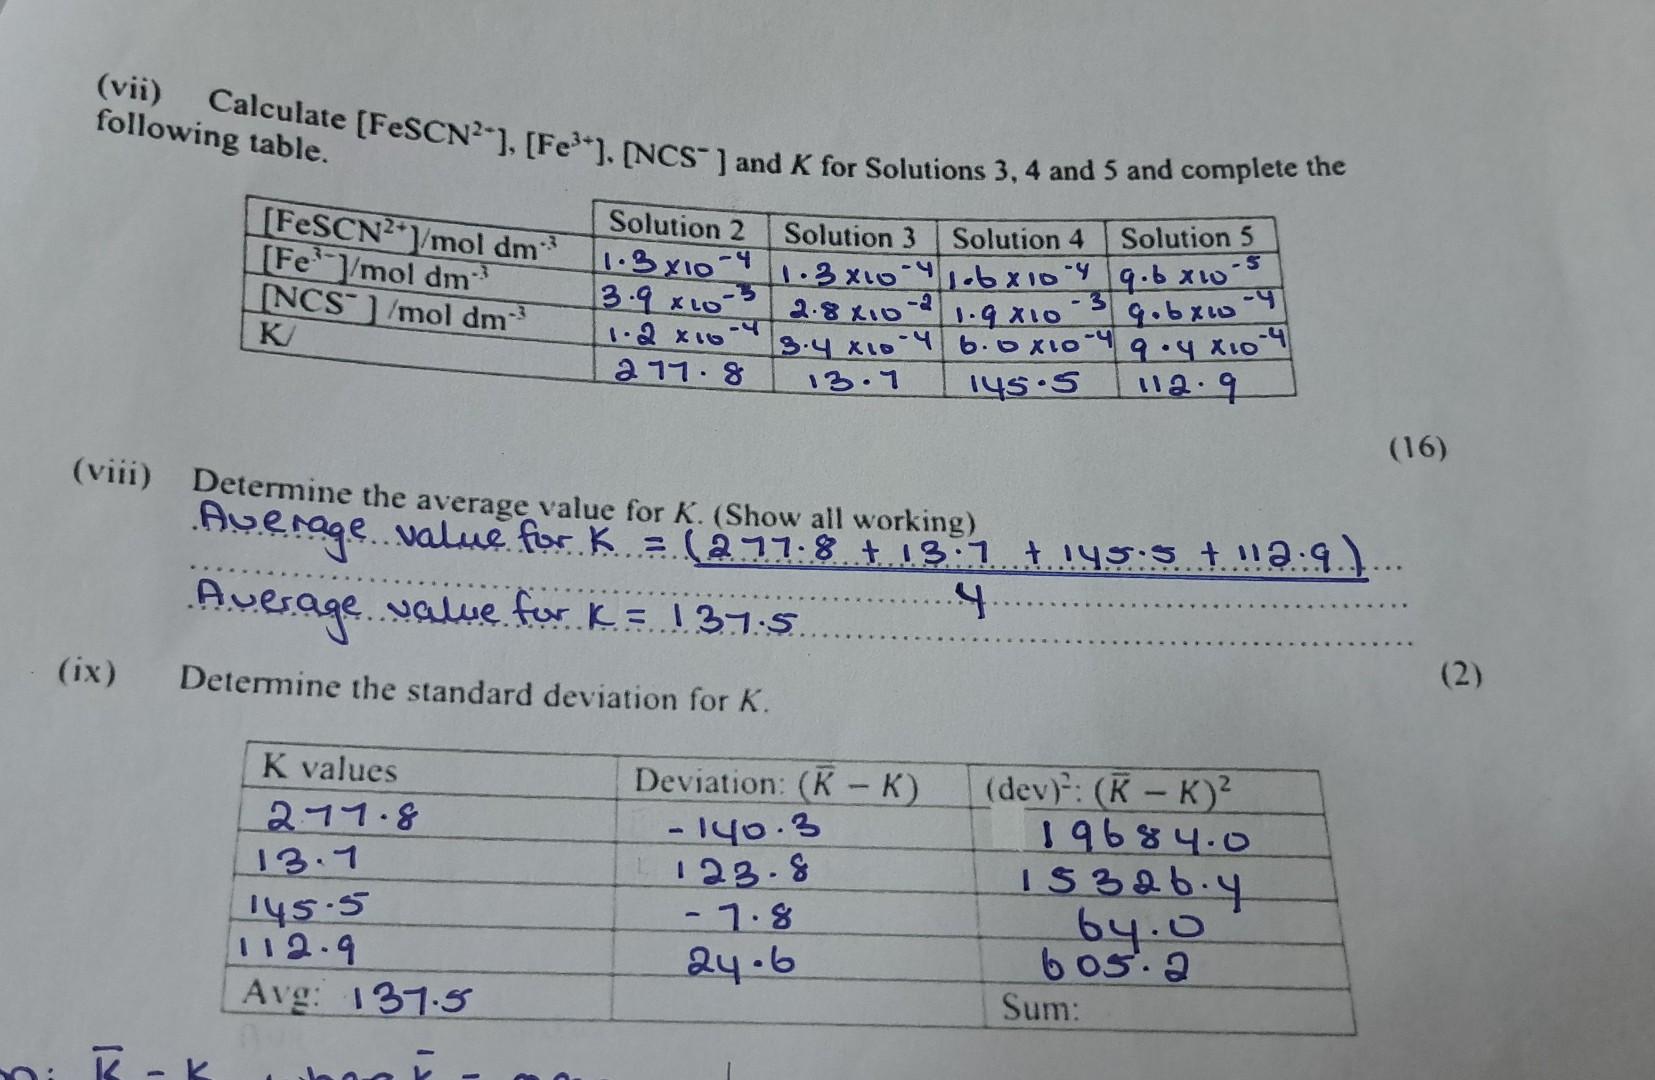 (vii) Calculate [FeSCN²⁺], [Fe³⁺], [NCS⁻] and K for Solutions 3, 4 and 5 and complete the
following table.
Solution 2 Solution 3 Solution 4 Solution 5
[FeSCN²⁺]/mol dm⁻³ 1.3 x10⁻⁴ 1.3 x10⁻⁴ 1.6 x 10⁻⁴ 9.6 x10⁻⁵
[Fe³⁺]/mol dm⁻³ 3.9 x10⁻³ 2.8 x10⁻² 1.9 x10⁻³ 9.6x10⁻⁴
[NCS⁻] /mol dm⁻³ 1.2 x10⁻⁴ 3.4 x10⁻⁴ 6.0 x10⁻⁴ 9.4 x10⁻⁴
K/ 277.8 13.7 145.5 112.9
(16)
(viii) Determine the average value for K. (Show all working)
Average value for K = (277.8 + 13.7 + 145.5 + 112.9)
4
Average value for K = 137.5
(2)
(ix) Determine the standard deviation for K.
K values Deviation: (K̅ − K) (dev)²: (K̅ − K)²
277.8 -140.3 19684.0
13.7 123.8 15326.4
145.5 -7.8 64.0
112.9 24.6 605.2
Avg: 137.5 Sum:
K̅ - K